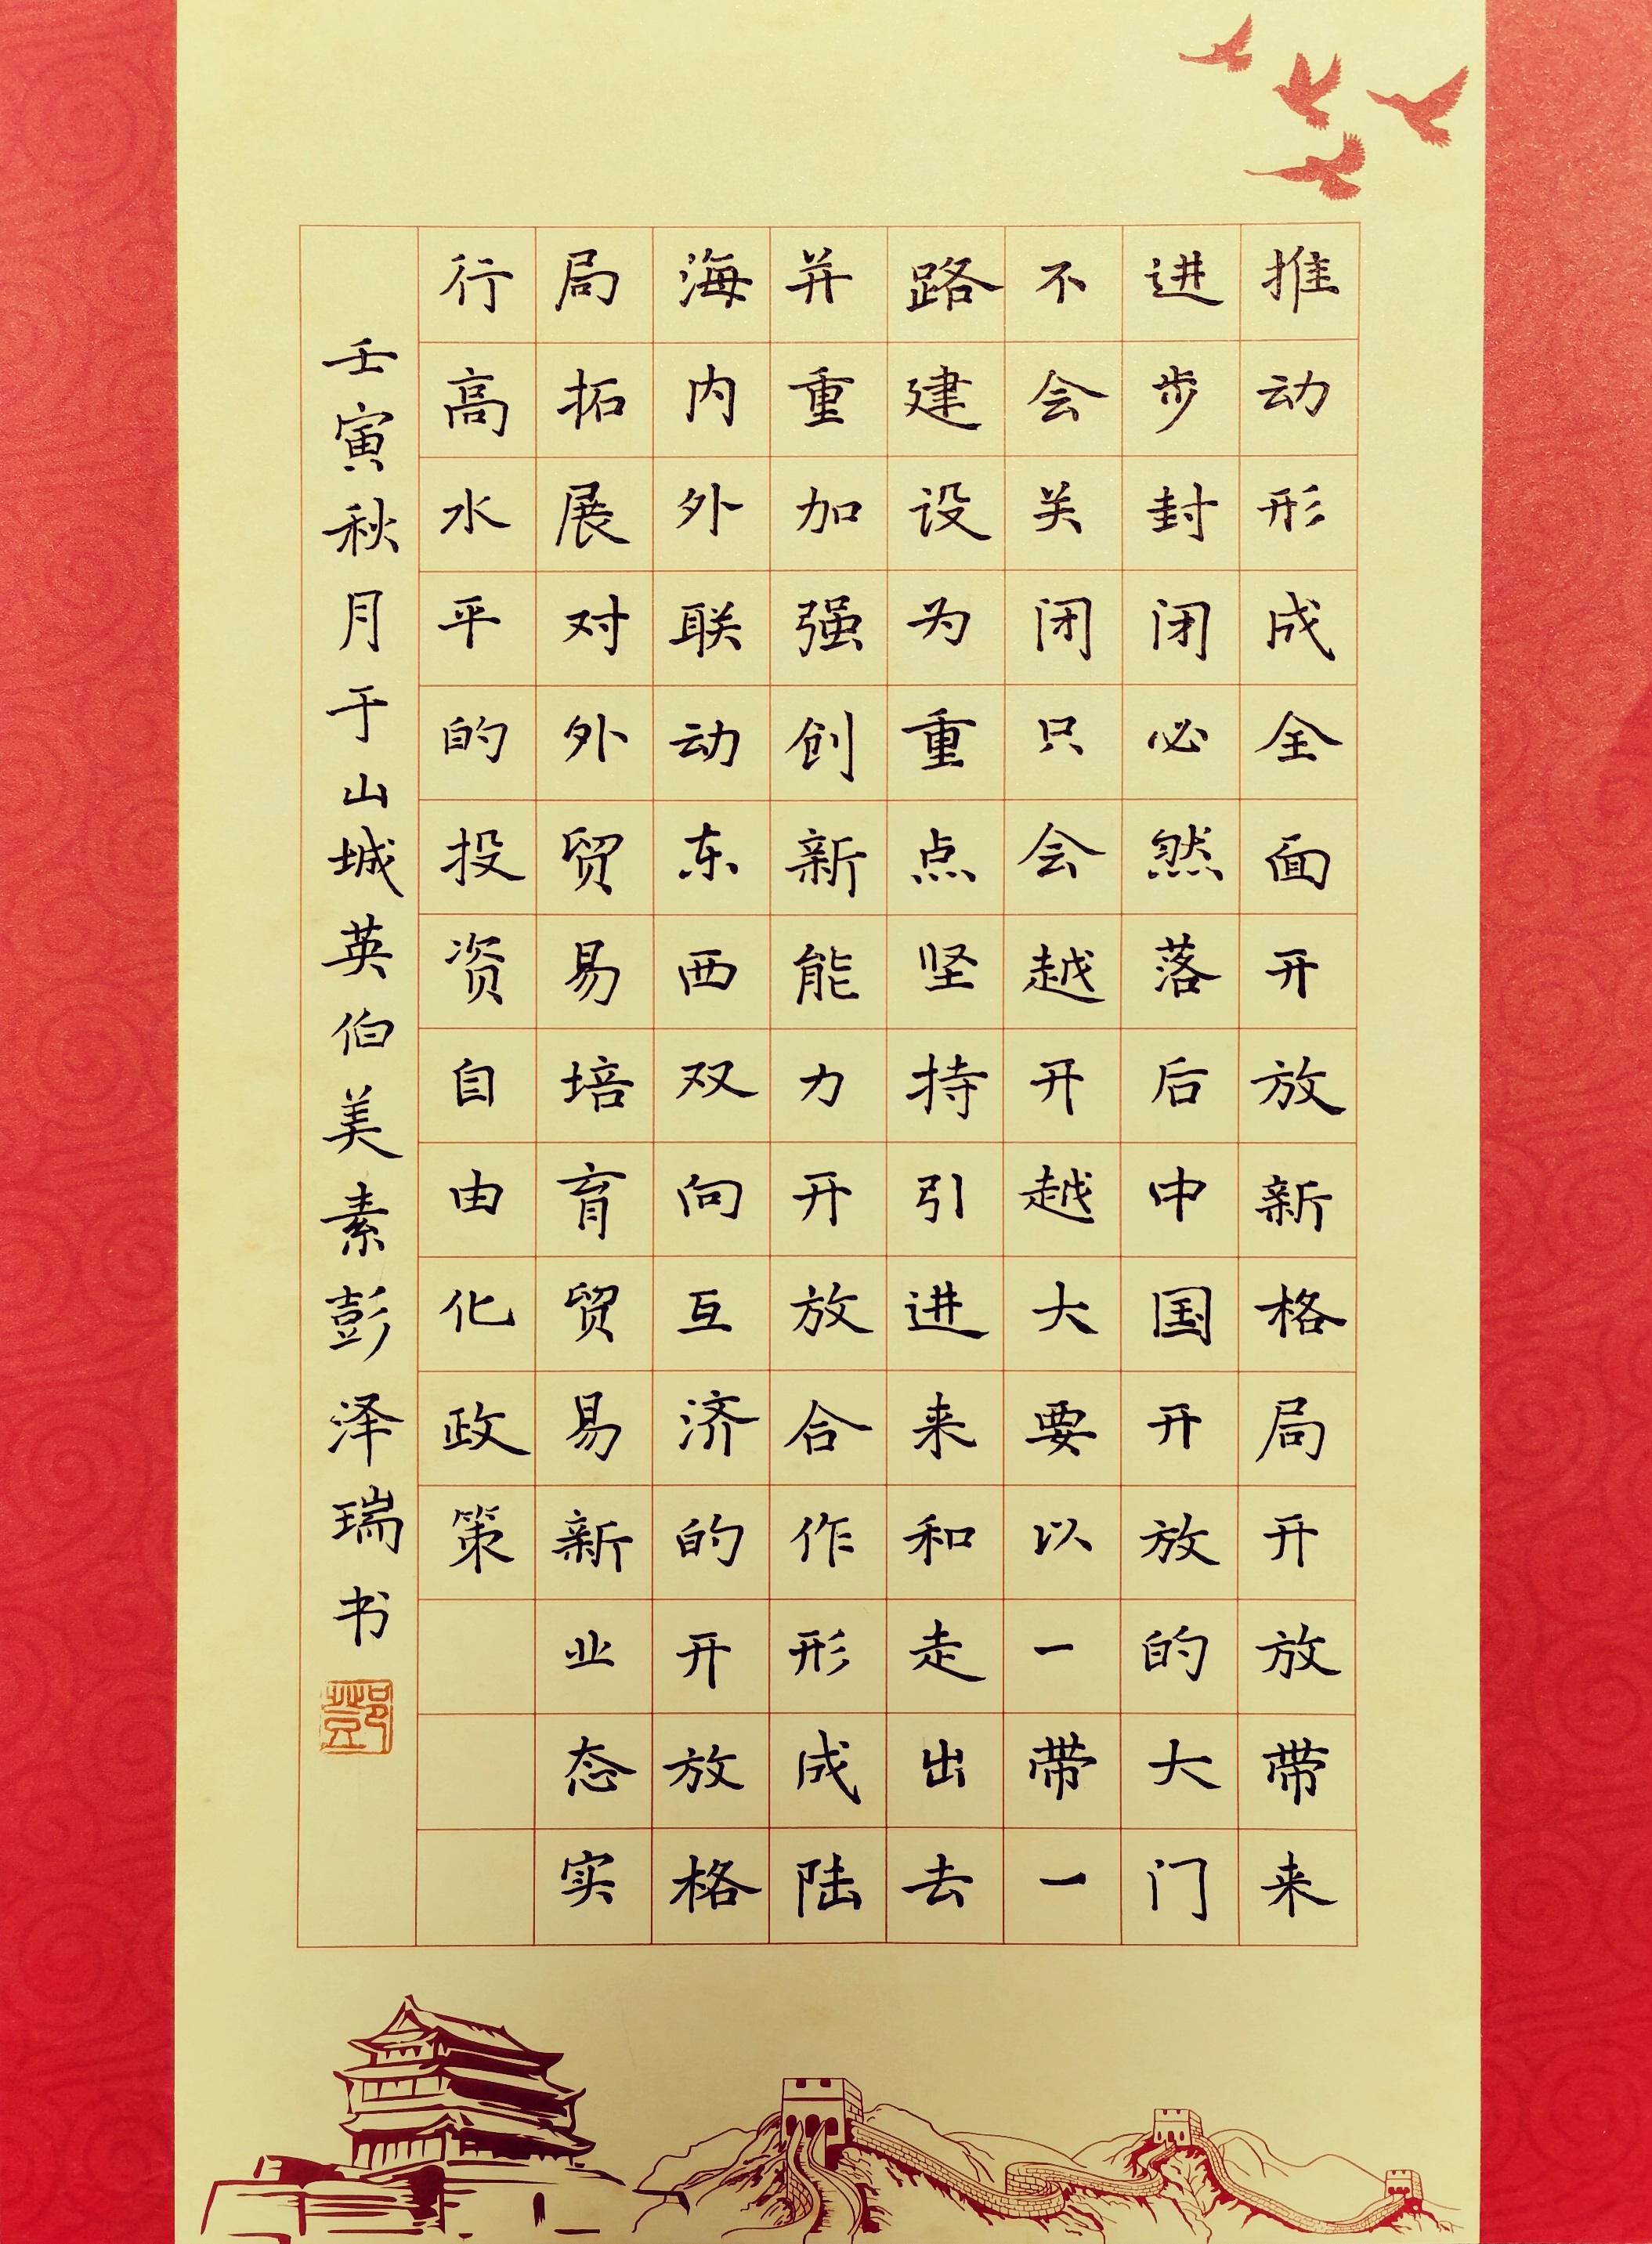 推动形成全面开放新格局开放带来
进步封闭必然落后中国开放的大门
不会关闭只会越开越大要以一带一
路建设为重点坚持引进来和走出去
并重加强创新能力开放合作形成陆
海内外联动东西双向互济的开放格
局拓展对外贸易培育贸易新业态实
行高水平的投资自由化政策
壬寅秋月于山城英伯美素彭泽瑞书